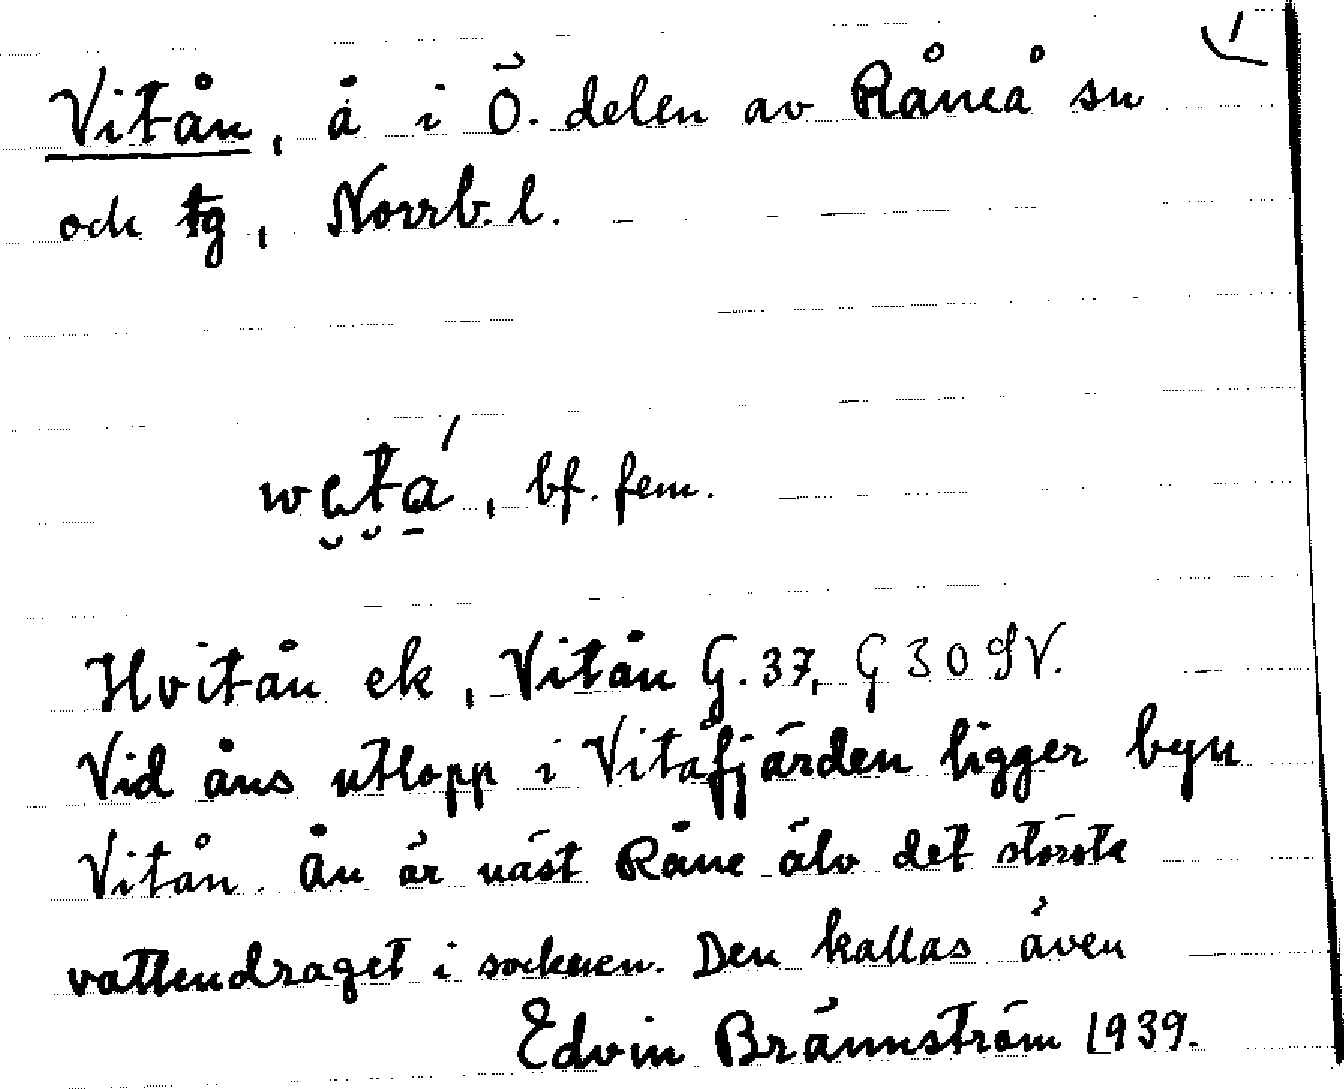 Vitån, å i Ö. delen av Råneå sn
och tg, Norrb. l.
bf. fem.
Hvitån ek, Vitån G. 37, G 30 SV.
Vid åns utlopp i Vitåfjärden ligger byn
Vitån. Ån är näst Råne älv det största
vattendraget i socknen. Den kallas även
Edvin Brännström 1939.